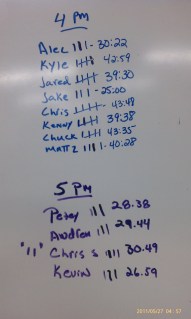 4 PM
Alec ||| - 30:22
Kyle 42:59
Jared 39:30
Jake ||| - 25:00
Chris 43:48
Kenny 39:38
Chuck 43:35
Matt 2 |||| - 40:28
5 PM
Petey ||| 28.38
Andrew ||| 29.44
"11" Chris S |||| 30.49
Kevin ||| 26.59